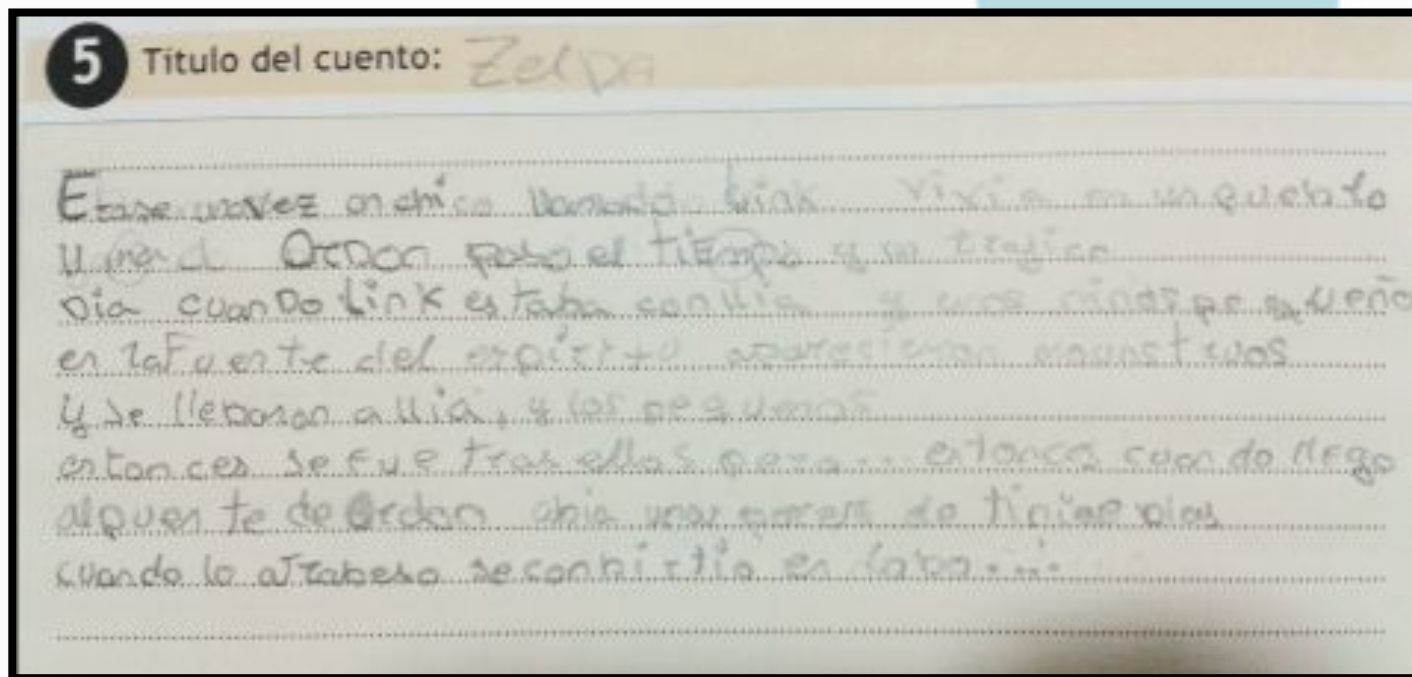 5 Título del cuento: Zelda
Erase una vez un chico llamado Link vivia en un pueblo
llamado Ordon paso el tiempo y un tragico
Dia cuando Link estaba con ilia y unos niños pequeño
en la Fuente del espiritu aparecieron mounstruos
y se lleboron a ilia, y los pequeños
entonces se fue tras ellos pero... entonces cuando llego
al puente de Ordon abia una pared de tinieblas
cuando lo atrabeso se conbirtio en lobo....